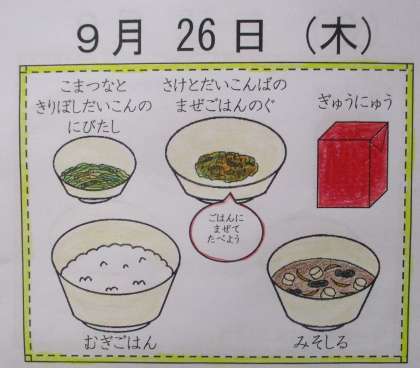 9月 26日 (木)
こまつなと
きりぼしだいこんの
にびたし
さけとだいこんばの
まぜごはんのぐ
ぎゅうにゅう
ごはんに
まぜて
たべよう
むぎごはん
みそしる